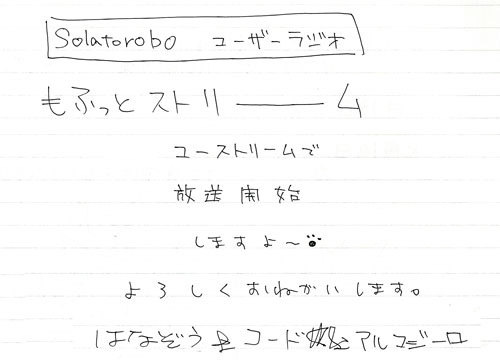 Solatorobo ユーザーラジオ
もふっとストリーーム
ユーストリームで
放送開始
しますよ〜
よろしくおねがいします。
はなぞう コード アルコジーロ